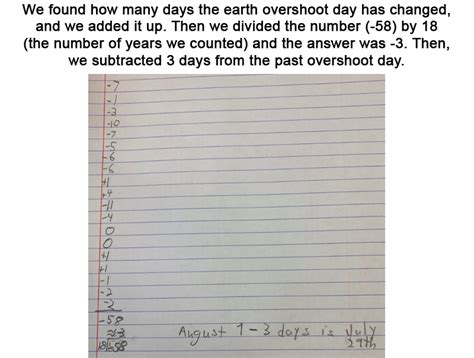 We found how many days the earth overshoot day has changed,
and we added it up. Then we divided the number (-58) by 18
(the number of years we counted) and the answer was -3. Then,
we subtracted 3 days from the past overshoot day.
-7
-1
-3
-10
-7
-5
-6
-6
+1
+4
-11
-4
0
0
+1
+1
-1
-2
-2
-58
≈-3
18
August 1-3 days is July
29th